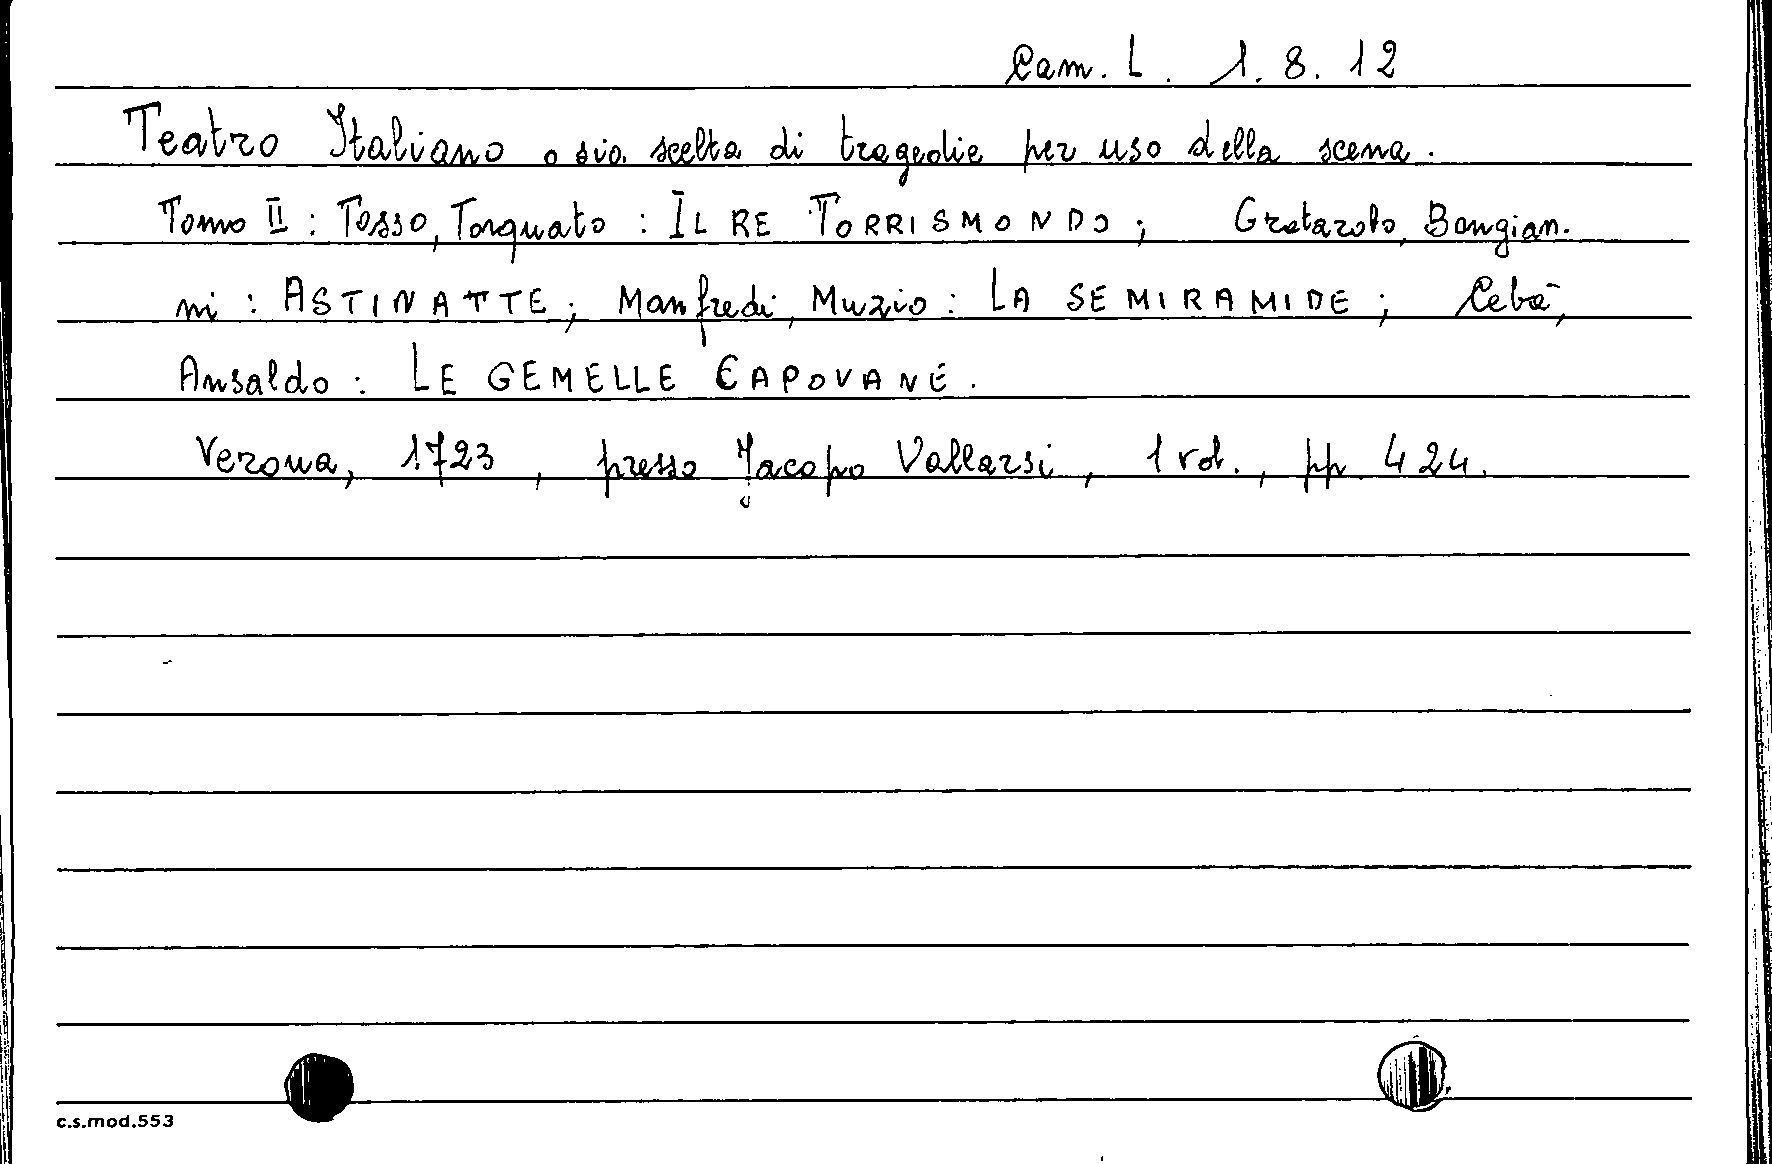 Cam. L. 1. 8. 12
Teatro Italiano o sia scelta di tragedie per uso della scena.
Tomo II : Tasso, Torquato : IL RE TORRISMONDO ; Gratarolo, Bongian.
ni : ASTINATTE ; Manfredi, Muzio : LA SEMIRAMIDE ; Cebà,
Ansaldo : LE GEMELLE CAPOVANE .
Verona, 1723 , presso Jacopo Vallarsi , 1 vol. , pp. 424.
c.s.mod.553